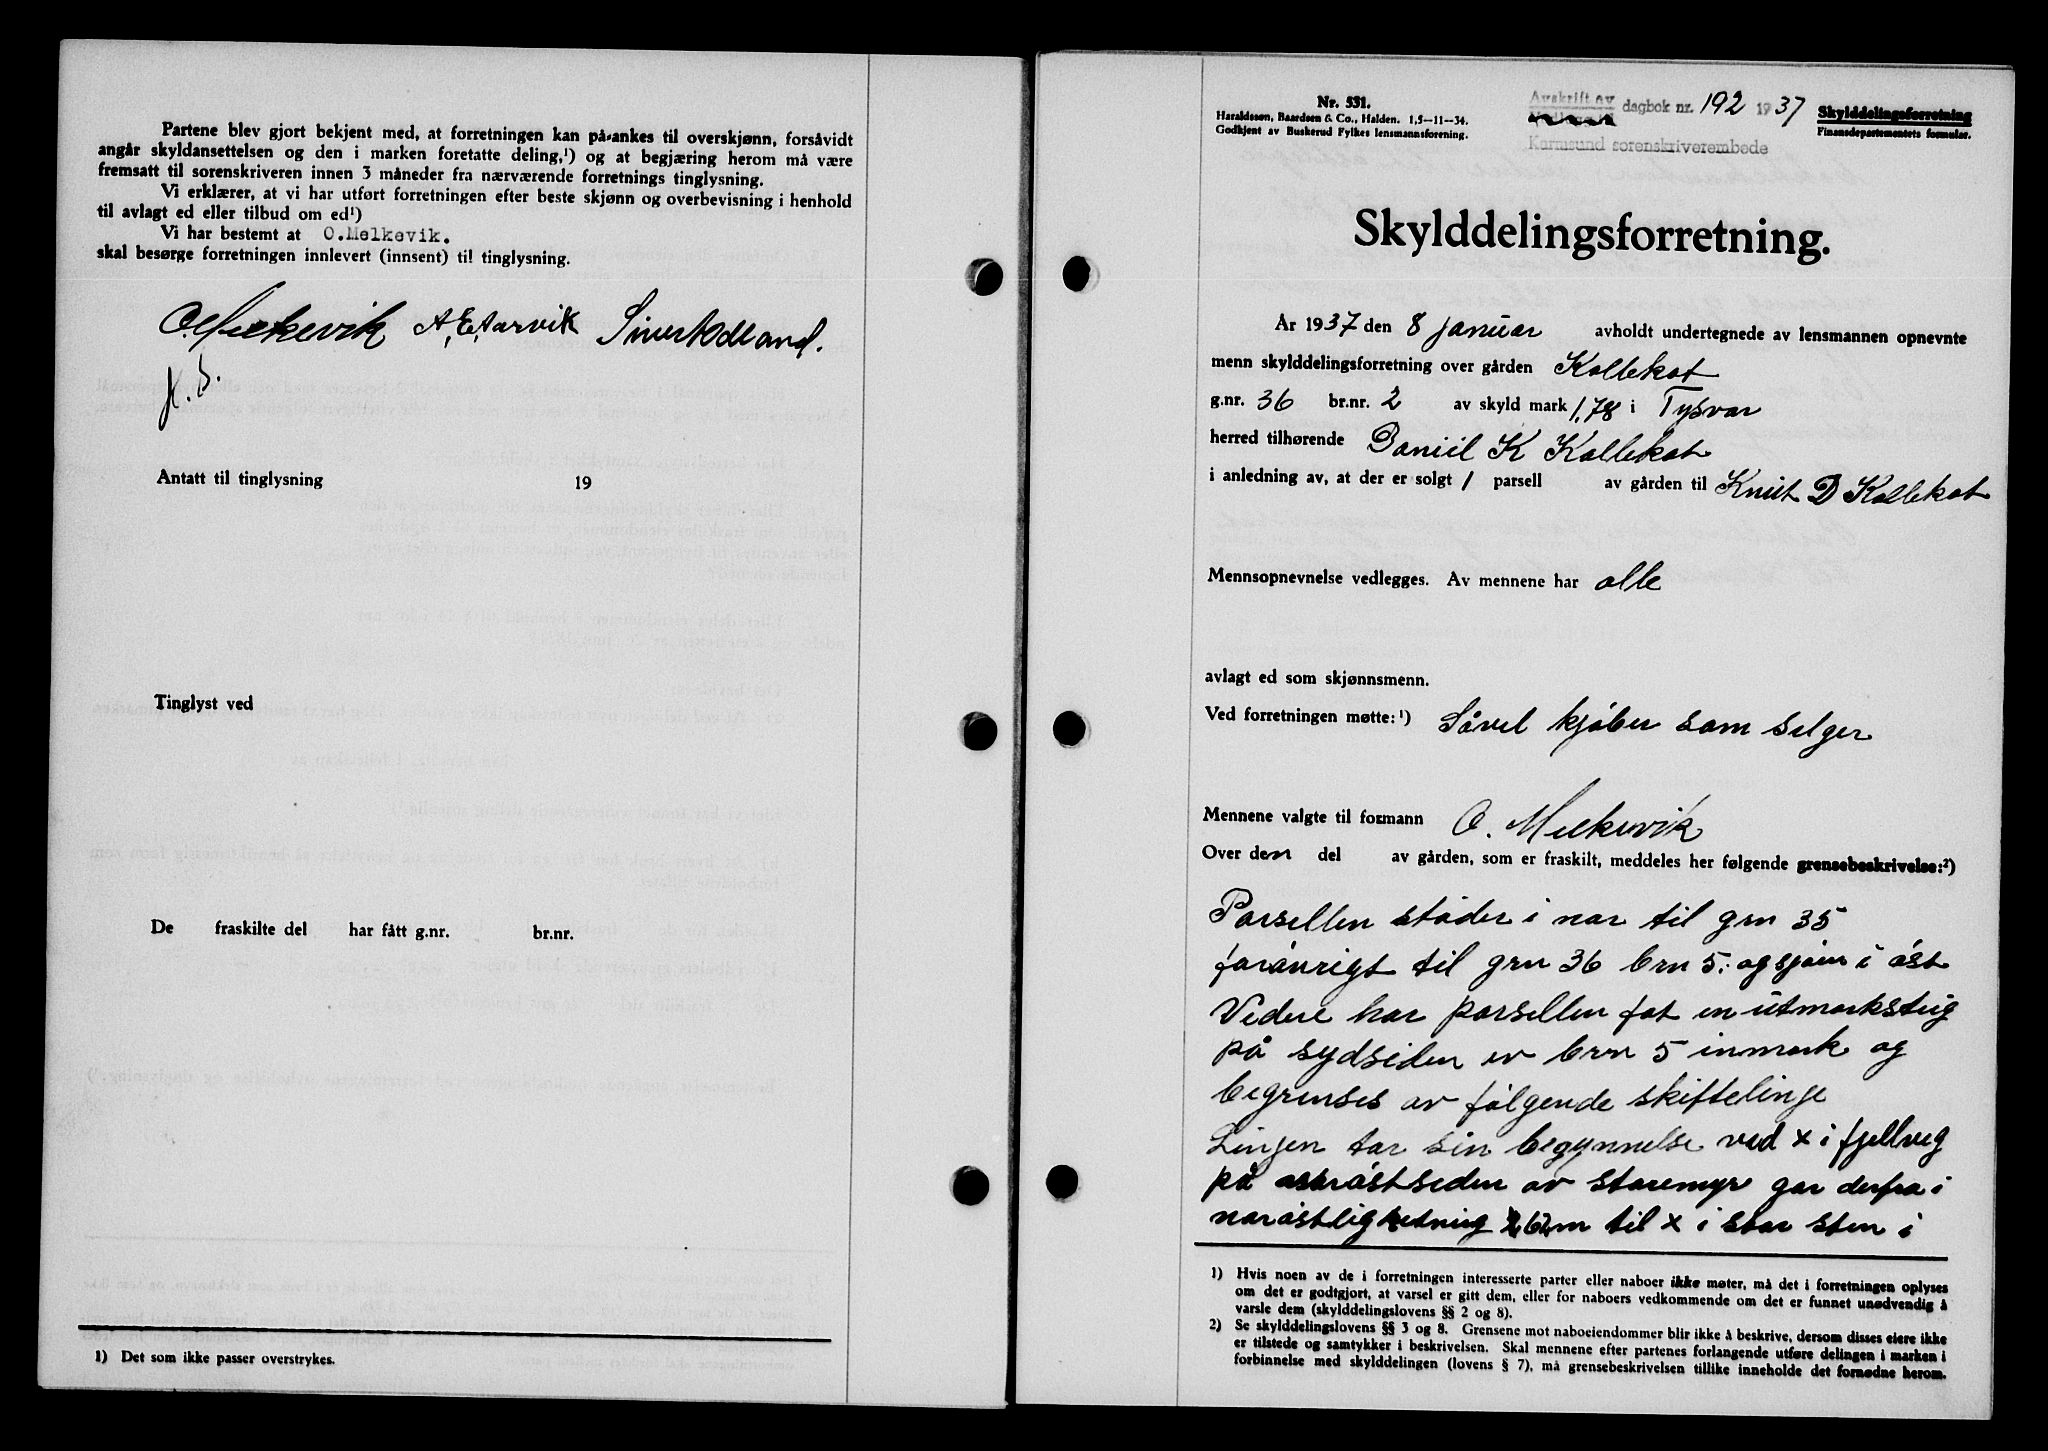 Partene blev gjort bekjent med, at forretningen kan på-ankes til overskjønn, forsåvidt
angår skyldansettelsen og den i marken foretatte deling,¹) og at begjæring herom må være
fremsatt til sorenskriveren innen 3 måneder fra nærværende forretnings tinglysning.
Vi erklærer, at vi har utført forretningen efter beste skjønn og overbevisning i henhold
til avlagt ed eller tilbud om ed¹)
Vi har bestemt at O.Melkevik.
skal besørge forretningen innlevert (innsent) til tinglysning.
O. Melkevik A. E. Aarvik Sivert Odland.
Antatt til tinglysning 19
Tinglyst ved
De fraskilte del har fått g.nr. br.nr.
1) Det som ikke passer overstrykes.
Nr. 531.
Haraldssøn, Baardsen & Co., Halden. 1,5-11-34.
Godkjent av Buskerud Fylkes lensmannsforening.
Avskrift av
dagbok nr. 192 1937
Karmsund sorenskriverembede
Skylddelingsforretning
Finansdepartementets formular.
Skylddelingsforretning.
År 1937 den 8 januar avholdt undertegnede av lensmannen opnevnte
menn skylddelingsforretning over gården Kallekot
g.nr. 36 br.nr. 2 av skyld mark 1,78 i Tysvar
herred tilhørende Daniil K Kallekot
i anledning av, at der er solgt 1 parsell av gården til Knut D Kallekot
Mennsopnevnelse vedlegges. Av mennene har alle
avlagt ed som skjønnsmenn.
Ved forretningen møtte:¹) Såvel kjøber som selger
Mennene valgte til formann O. Melkevik
Over den del av gården, som er fraskilt, meddeles her følgende grensebeskrivelse:²)
Parsellen støder i nor til grn 35
forøvrigt til grn 36 brn 5. og sjøen i øst
Videre har parsellen fot en utmarksteig
på sydsiden av brn 5 inmark og
begrenses av følgende skiftelinje
Linjen tar sin begynnelse ved x i fjellveg
på østsiden av Storemyr gar derfra i
norøstlig retning 62m til x i stor sten i
1) Hvis noen av de i forretningen interesserte parter eller naboer ikke møter, må det i forretningen oplyses
om det er godtgjort, at varsel er gitt dem, eller for naboers vedkommende om det er funnet unødvendig å
varsle dem (skylddelingslovens §§ 2 og 8).
2) Se skylddelingslovens §§ 3 og 8. Grensene mot naboeiendommer blir ikke å beskrive, dersom disses eiere ikke
er tilstede og samtykker i beskrivelsen. Skal mennene efter partenes forlangende utføre delingen i marken i
forbinnelse med skylddelingen (lovens § 7), må grensebeskrivelsen tillike inneholde det fornødne herom.